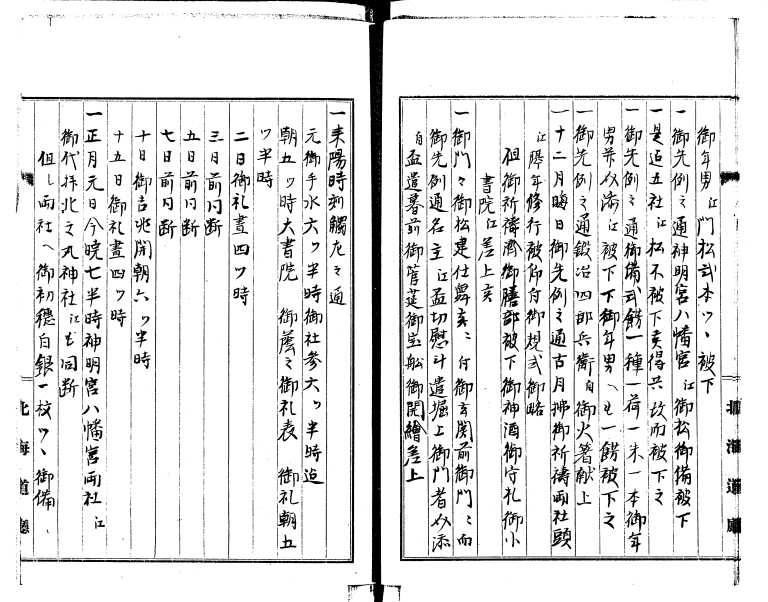 御年男江門松弐本ツヽ被下
一御先例之通神明宮八幡宮江御松御備被下
一是迄五社江松不被下〓得共故而被下之
一御先例之通御備弐餝一種一荷一末一本御年
男并以添江被下下御年男ヘも一餝被下之
一御先例之通鍛冶四郎兵衛自御火著献上
一十二月晦日御先例之通古月拂御祈禱両社頭
江隔年修行被仰付御規式御略
但御祈禱済御膳部被下御神酒御守札御小
書院江差上〓
一御門々御松建仕舞〓ニ付御玄関前御門々而
御先例通名主江盃切慰斗遣堀上御門者以添
自盃遣暮前御菅莚御宝船御開繪差上
一来陽時刻觸左之通
元御手水六ツ半時御社参六ツ半時迠
朝五ツ時大書院 御蔭之御礼表 御礼朝五
ツ半時
二日御礼晝四ツ時
三日前同断
五日前同断
七日前同断
十日御吉兆開朝六ツ半時
十五日御礼晝四ツ時
一正月元日今暁七半時神明宮八幡宮両社江
御代拝北之丸神社江も同断
但し両社ヘ御初穂白銀一枚ツヽ御備
北海道廳
北海道廳